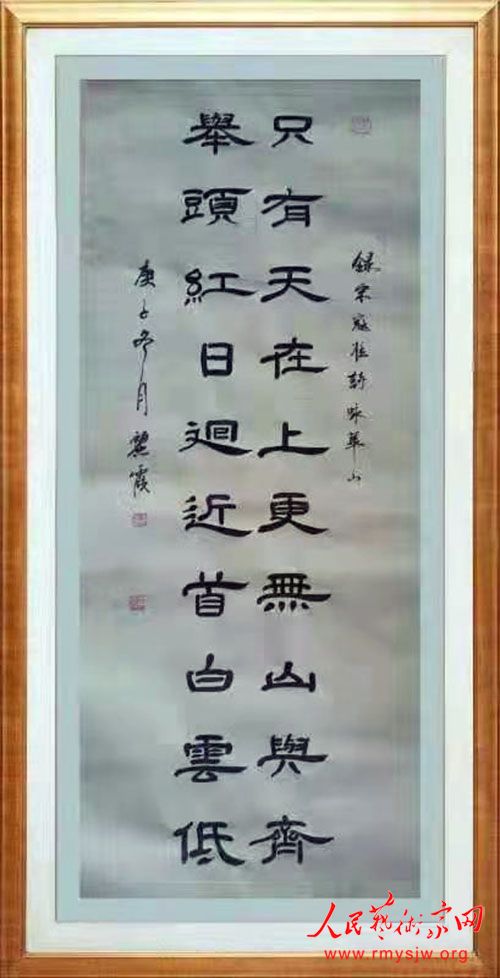 録宋寇准詩咏華山
只有天在上更無山與齊
舉頭紅日迴近首白雲低
庚子冬月麗霞
人民藝術家网
www.rmysjw.org